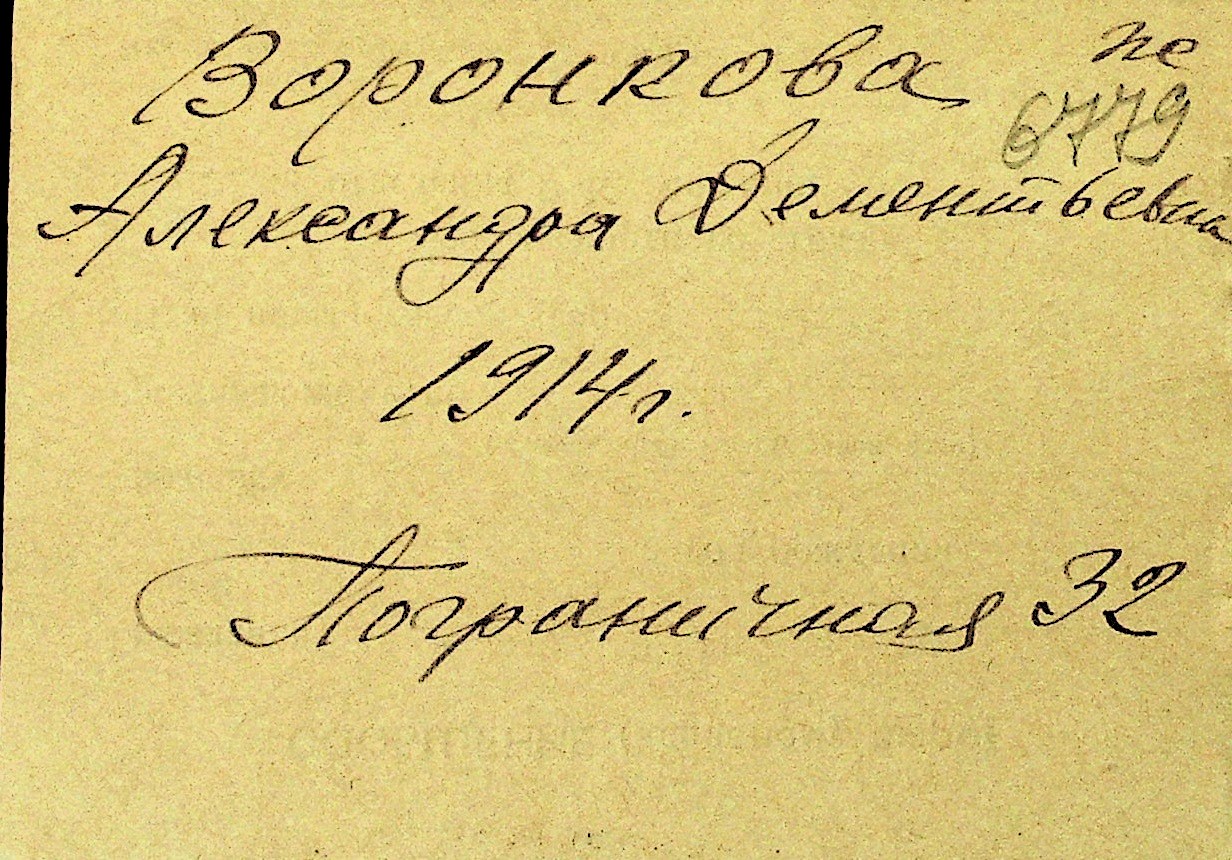 Воронкова пе
6779
Александра Дементьевна
1914г.
Пограничная 32